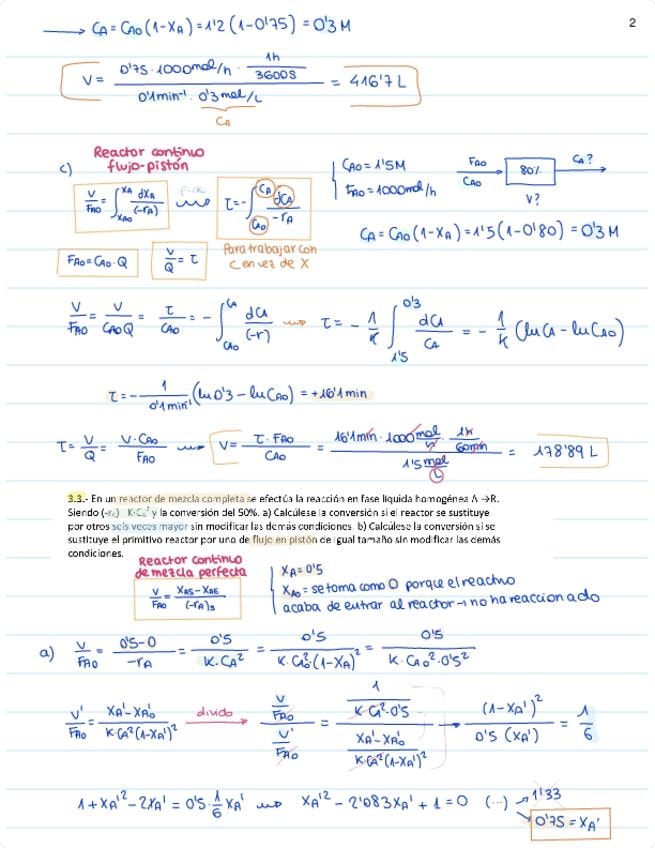 2
→ CA = CAO (1-XA) = 1'2 (1-0'75) = 0'3 M
V = (0'75 · 1000 mol/h · 1h/3600S) / (0'1 min⁻¹ · 0'3 mol/L) = 416'7 L
CA
Reactor continuo
flujo-pistón
c)
V/FAO = ∫XAO^XA dXA/(-rA) → τ = -∫CAO^CA dCA/-rA
CAO = 1'5M
FAO = 1000 mol/h
FAO
CAO
80%
CA?
V?
FAO = CAO · Q
V/Q = τ
Para trabajar con
C en vez de X
CA = CAO (1-XA) = 1'5 (1-0'80) = 0'3 M
V/FAO = V/CAOQ = τ/CAO = -∫CAO^CA dCA/(-r) → τ = -1/K ∫1'5^0'3 dCA/CA = -1/K (lnCA - lnCAO)
τ = -1/0'1min⁻¹ (ln0'3 - lnCAO) = +16'1 min
τ = V/Q = V·CAO/FAO → V = τ·FAO/CAO = (16'1 min · 1000 mol/h · 1h/60min) / (1'5 mol/L) = 178'89 L
3.3.- En un reactor de mezcla completa se efectúa la reacción en fase líquida homogénea A →R.
Siendo (-rA) K·CA² y la conversión del 50%. a) Calcúlese la conversión si el reactor se sustituye
por otros seis veces mayor sin modificar las demás condiciones. b) Calcúlese la conversión si se
sustituye el primitivo reactor por uno de flujo en pistón de igual tamaño sin modificar las demás
condiciones.
Reactor continuo
de mezcla perfecta
V/FAO = XAS - XAE/(-rA)s
XA = 0'5
XAO = se toma como 0 porque el reactivo
acaba de entrar al reactor → no ha reaccionado
a) V/FAO = 0'5-0/-rA = 0'5/K·CA² = 0'5/K·CAO²·(1-XA)² = 0'5/K·CAO²·0'5²
V'/FAO = XA'-XAO'/K·CA²(1-XA')² divido → (V/FAO)/(V'/FAO) = (1/K·CA²·0'5)/(XA'-XAO'/K·CA²(1-XA')²) → (1-XA')²/0'5 (XA') = 1/6
1+XA'² - 2XA' = 0'5 · 1/6 XA' → XA'² - 2'083XA' + 1 = 0 (...) → 1'33
0'75 = XA'